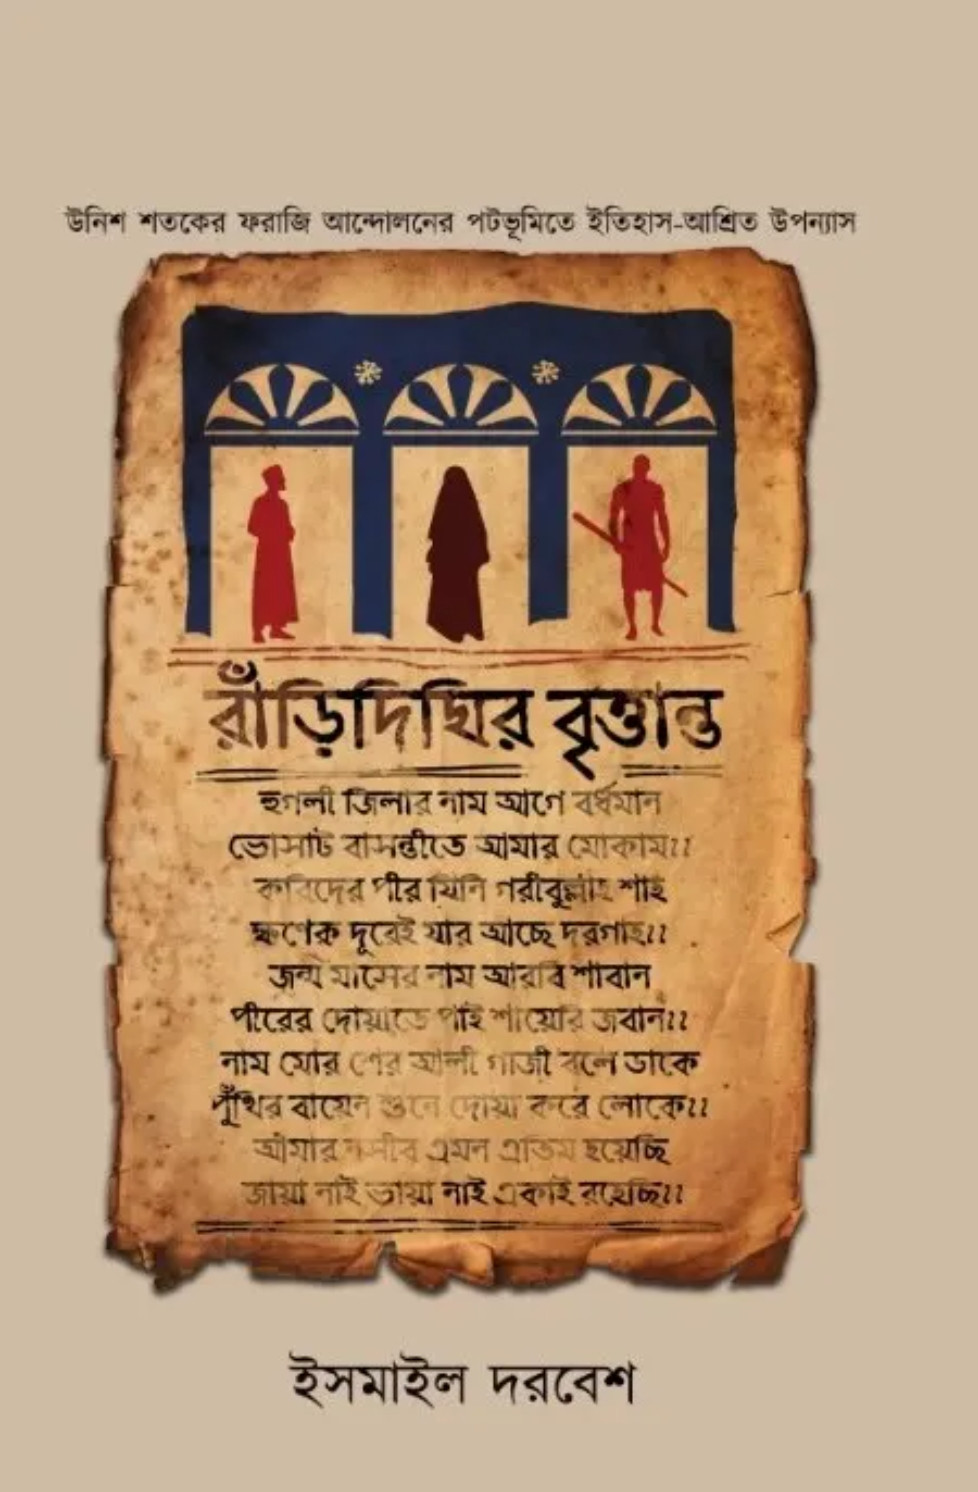 উনিশ শতকের ফরাজি আন্দোলনের পটভূমিতে ইতিহাস-আশ্রিত উপন্যাস
রাঁড়িদিঘির বৃত্তান্ত
হুগলী জিলার নাম আগে বর্ধমান
ভোসাট বাসন্তীতে আমার মোকাম।।
কবিদের পীর যিনি গরীবুল্লাহ শাহ
ক্ষণেক দূরেই যার আছে দরগাহ।।
জন্ম মাসের নাম আরবি শাবান
পীরের দোয়াতে পাই শায়েরি জবান।।
নাম মোর শের আলী গাজী বলে ডাকে
পুঁথির বায়েন শুনে দোয়া করে লোকে।।
আমার নসীব এমন এতিম হয়েছি
জায়া নাই ভায়া নাই একাই রহেছি।।
ইসমাইল দরবেশ